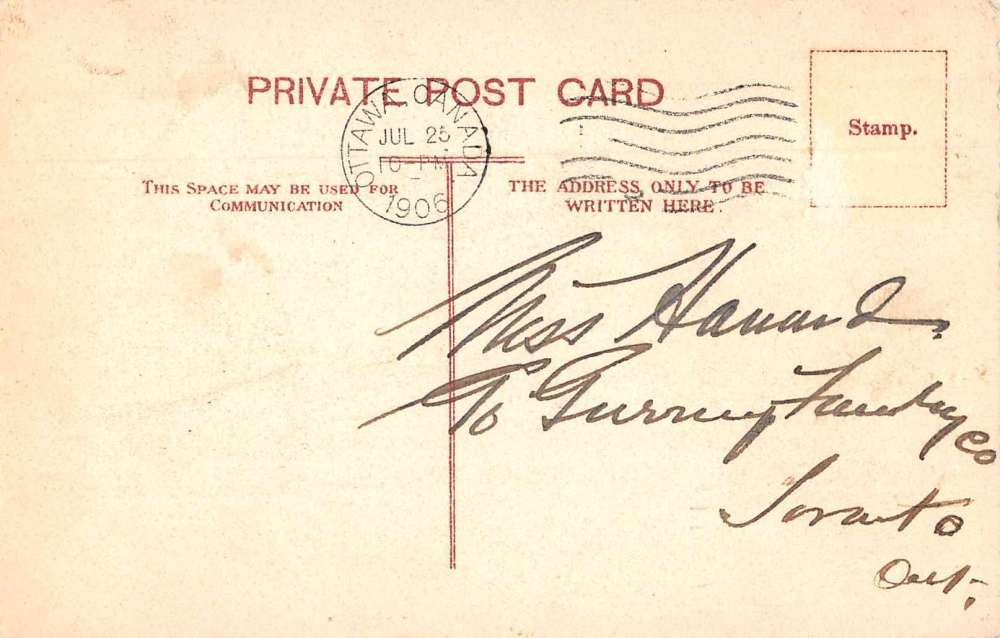 PRIVATE POST CARD
OTTAWA, CANADA
JUL 25
10-PM
1906
Stamp.
THIS SPACE MAY BE USED FOR
COMMUNICATION
THE ADDRESS ONLY TO BE
WRITTEN HERE.
Miss
Gurney Foundry Co
Toronto
Ont.